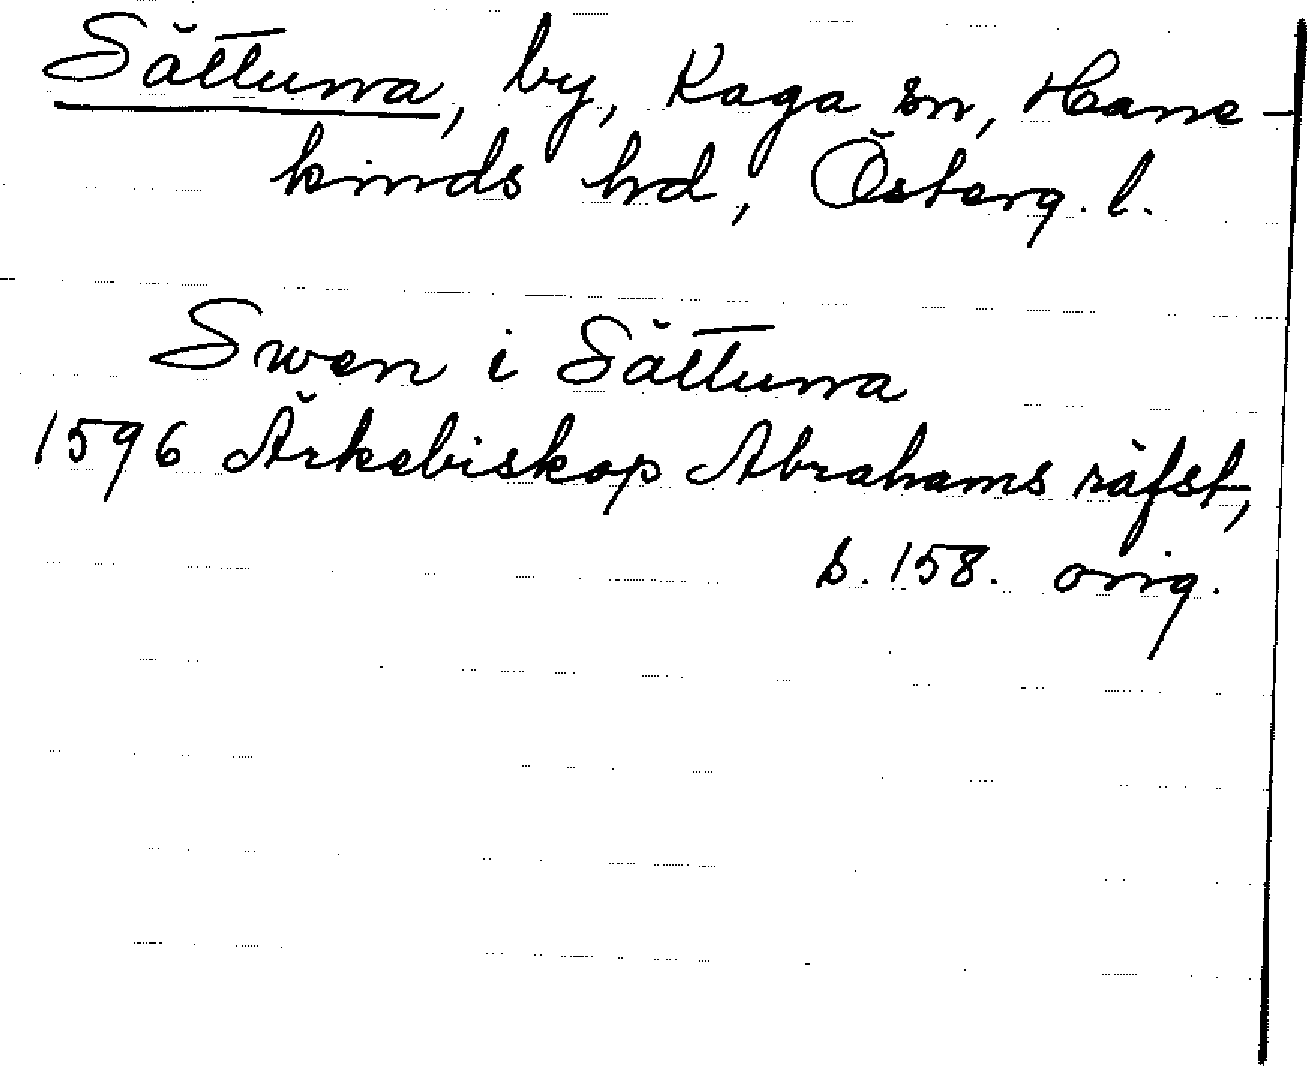 Sättuna, by, Kaga sn, Hane-
kinds hd, Österg. l.
Swen i Sättuna
1596 Ärkebiskop Abrahams räfst,
s. 158. orig.